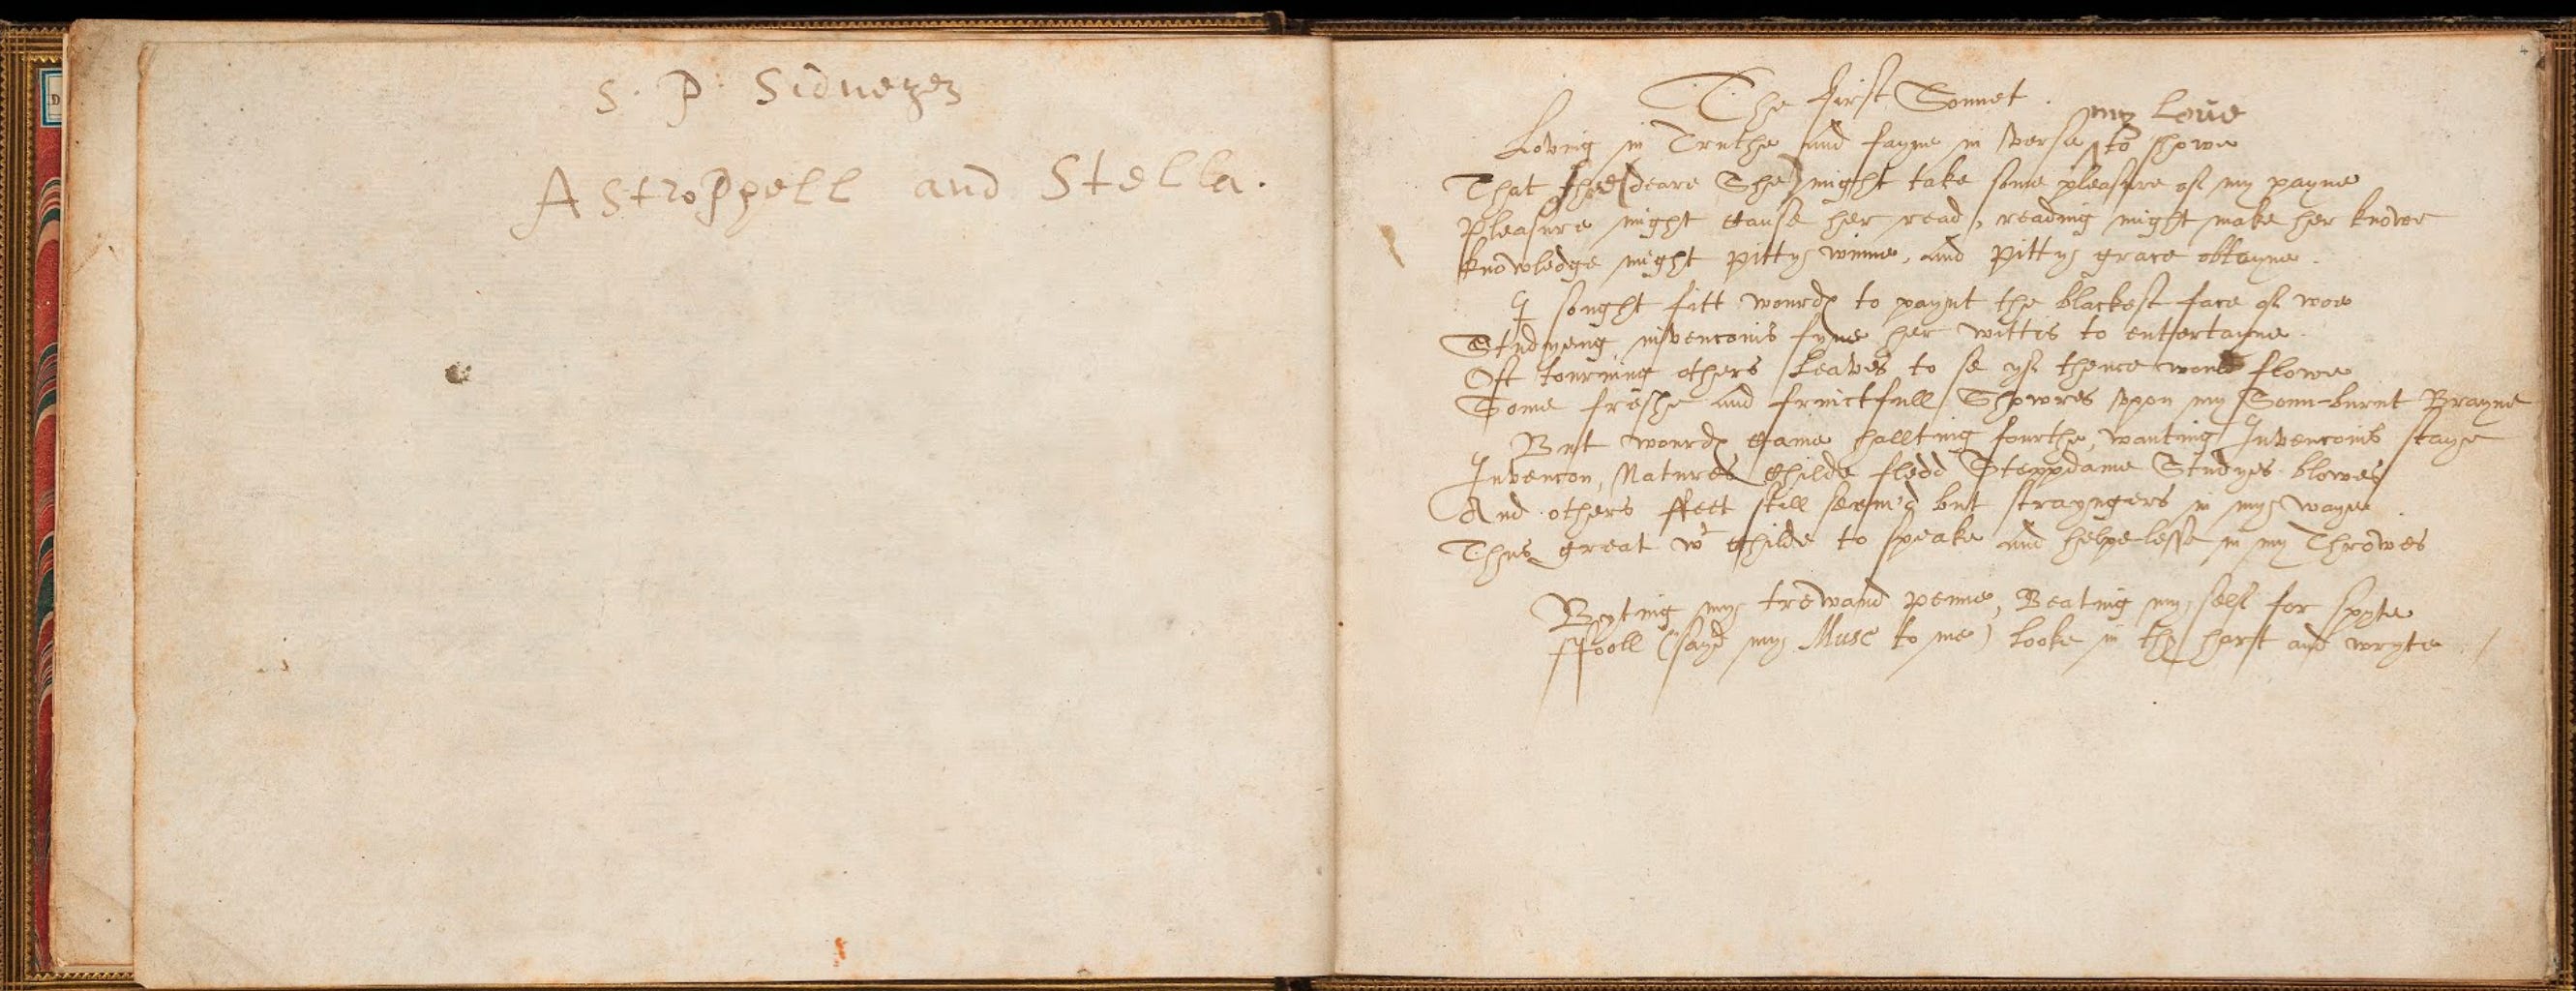 S. P. Sidneyes
Astrophell and Stella.
4
The First Sonnet.
my Love
Loving in Truthe and fayne in verse ^ to showe
That shee (deare She) might take some pleasure of my payne
Pleasure might cause her read, reading might make her knowe
knowledge might pitty winne, and pitty grace obtayne.
I sought fitt wourdes to paynt the blackest face of woe
Studyeng invencons fyne her wittes to entertayne.
Oft tourning others Leaves to se yf thence would flowe
Some freshe and fruictfull Showres upon my Sonn-burnt Brayne
But wourdes came hallting fourthe, wanting Invencons staye
Invencon, Natures Childe fledd Steppdame Studyes blowes
And others ffeet still seem'd but strayngers in my waye.
Thus great wt Childe to speake and helpelesse in my Throwes
Byting my trewand penne, Beating my self for spyte
ffooll (sayd my Muse to me) Looke in thy hart and wryte /